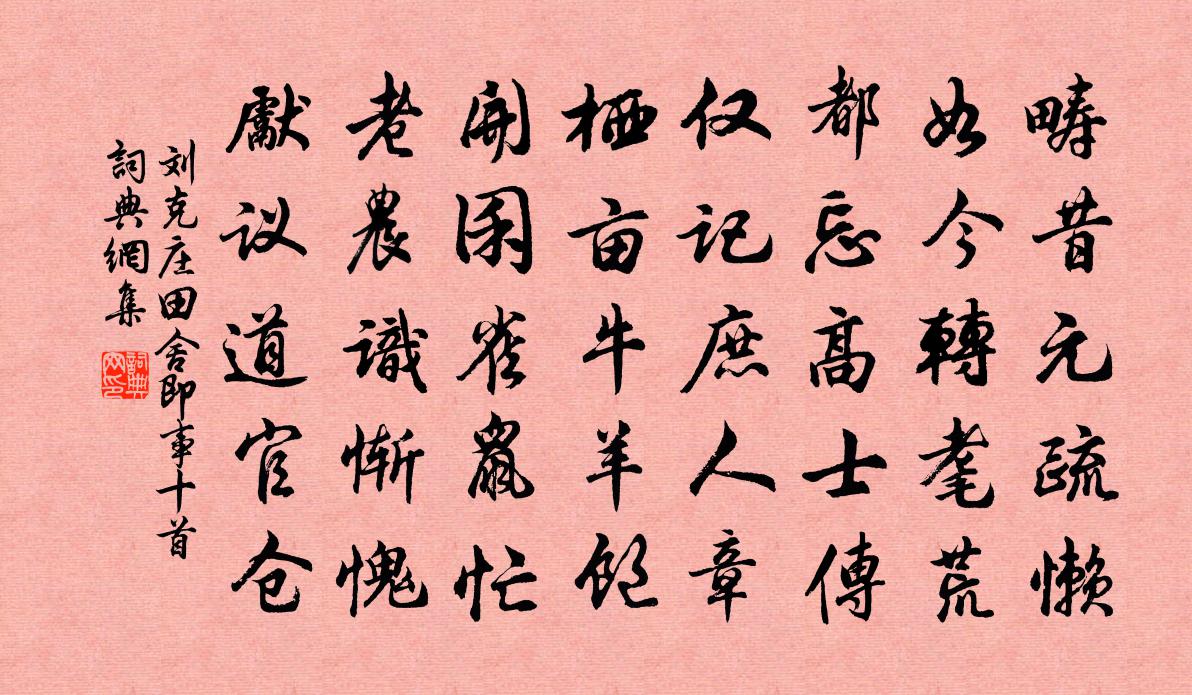 畴昔元疏懒
如今轉耄荒
都忘高士傳
仅记庶人章
栖亩牛羊饱
開囷雀鼠忙
老農識惭愧
獻议道官仓
刘克庄田舍即事十首
詞典網集
詞典网印